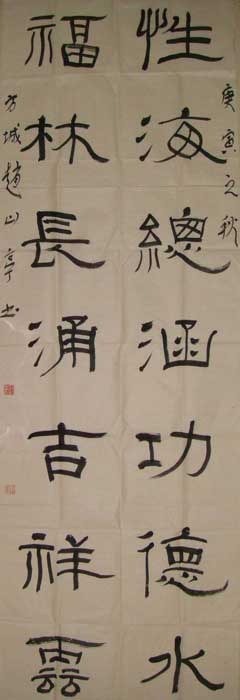 庚寅之秋
性海總涵功德水
福林長涌吉祥雲
方城趙山亭书